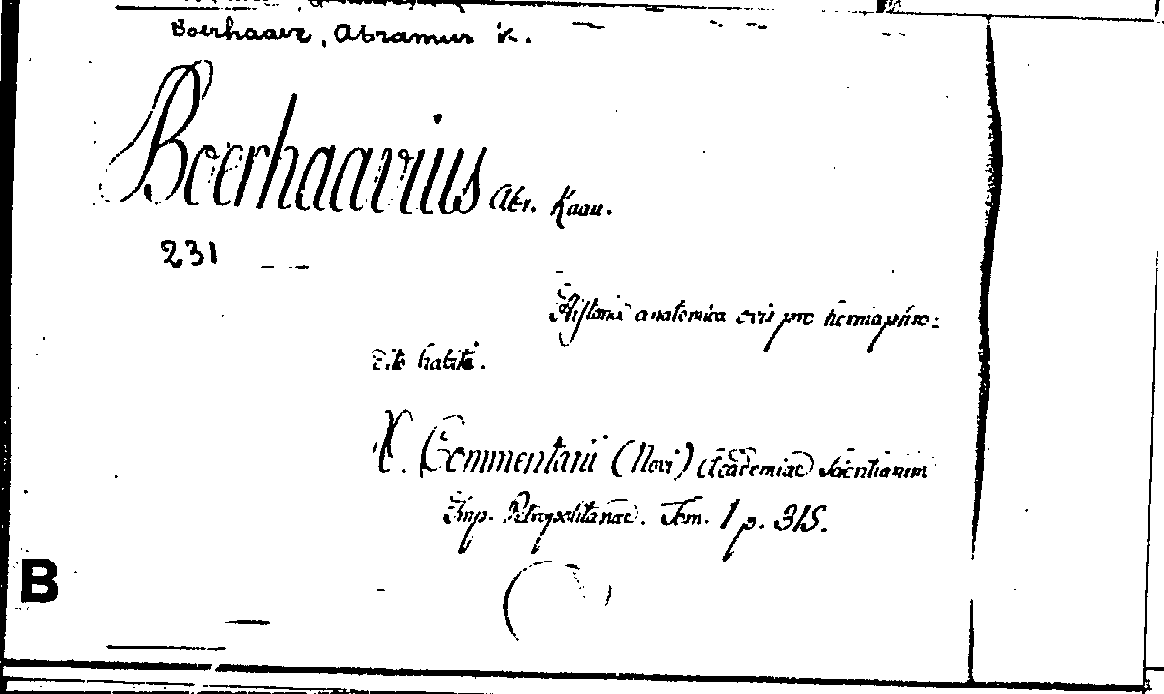 Boerhaave, Abramus K.
Boerhaavius Abr. Kaau.
231
Historia anatomica ovis pro hermaphro=
dito habiti.
V. Commentarii (Novi) Academiae Scientiarum
Imp. Petropolitanae. Tom. 1 p. 315.
B